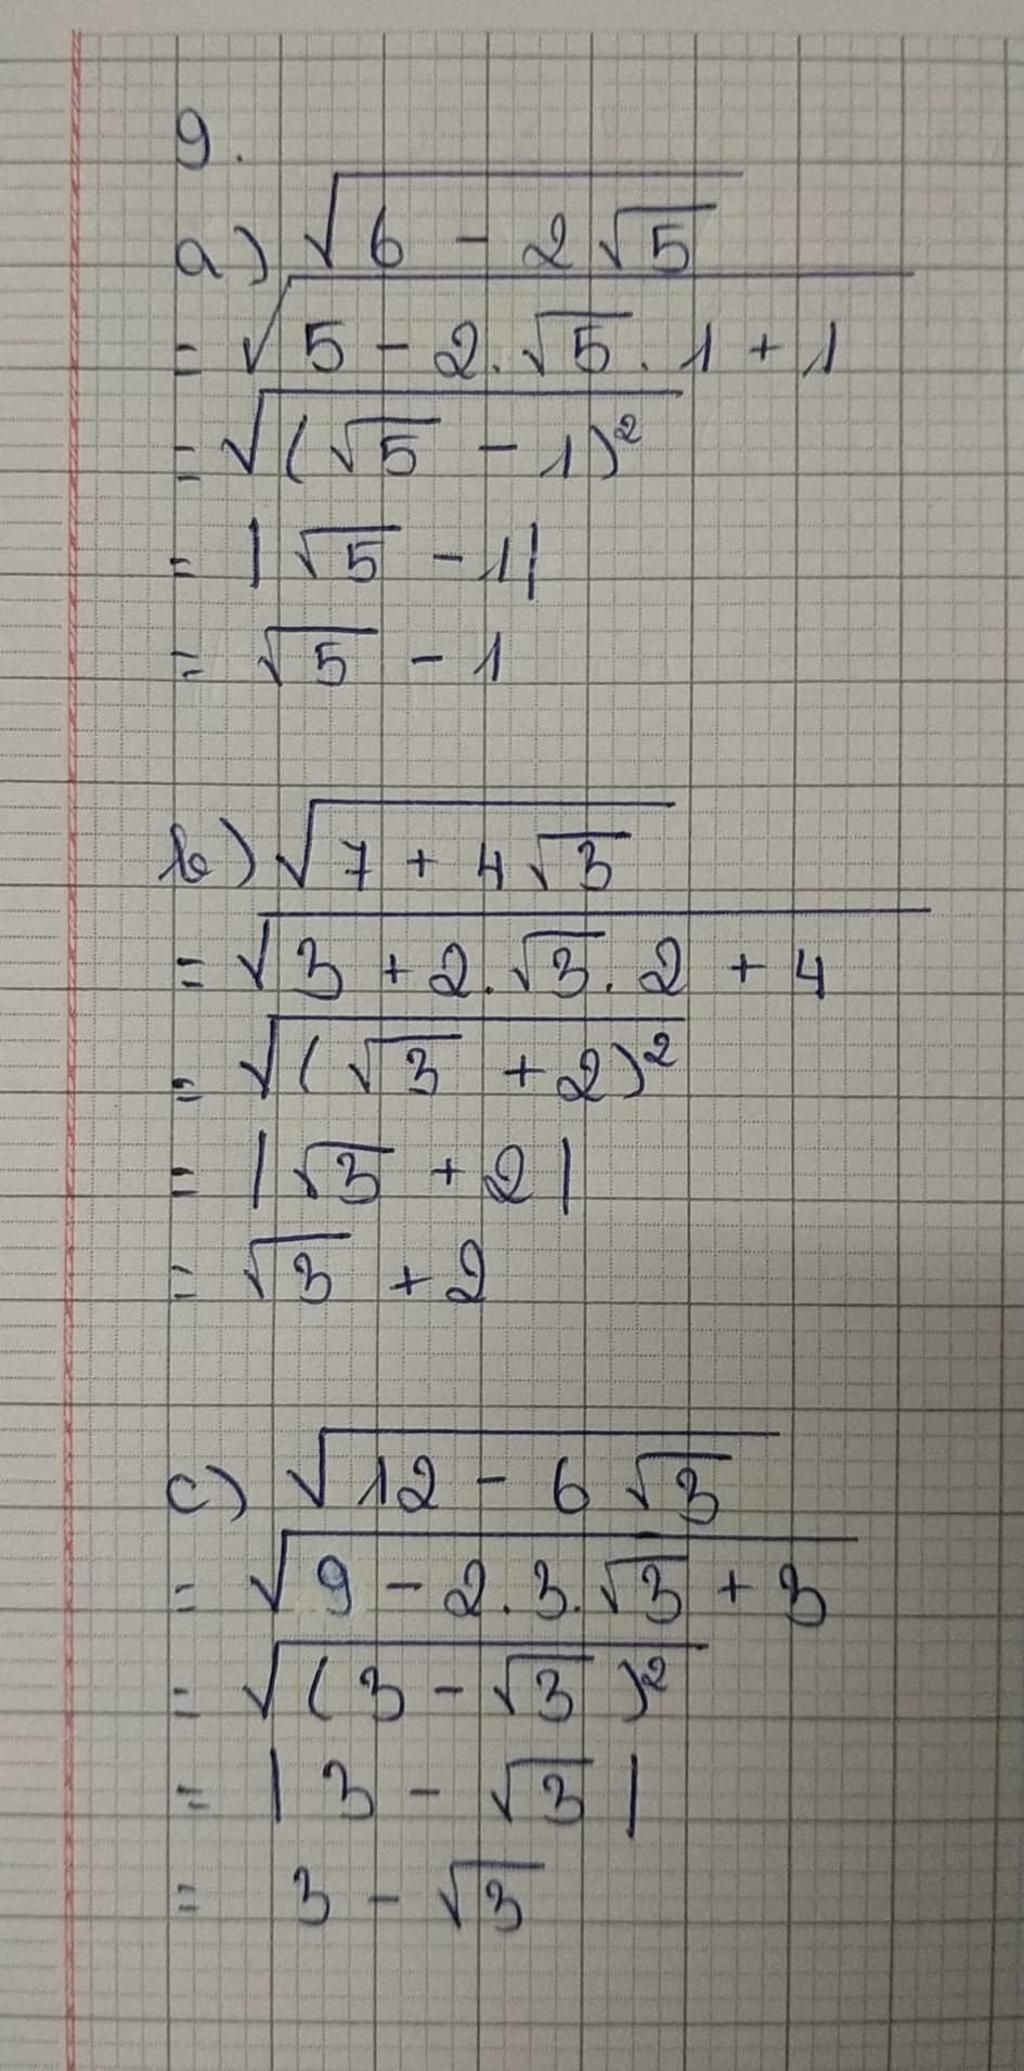 9.
a) √(6 - 2√5)
= √(5 - 2.√5.1 + 1)
= √((√5 - 1)²)
= |√5 - 1|
= √5 - 1
b) √(7 + 4√3)
= √(3 + 2.√3.2 + 4)
= √((√3 + 2)²)
= |√3 + 2|
= √3 + 2
c) √(12 - 6√3)
= √(9 - 2.3.√3 + 3)
= √((3 - √3)²)
= |3 - √3|
= 3 - √3